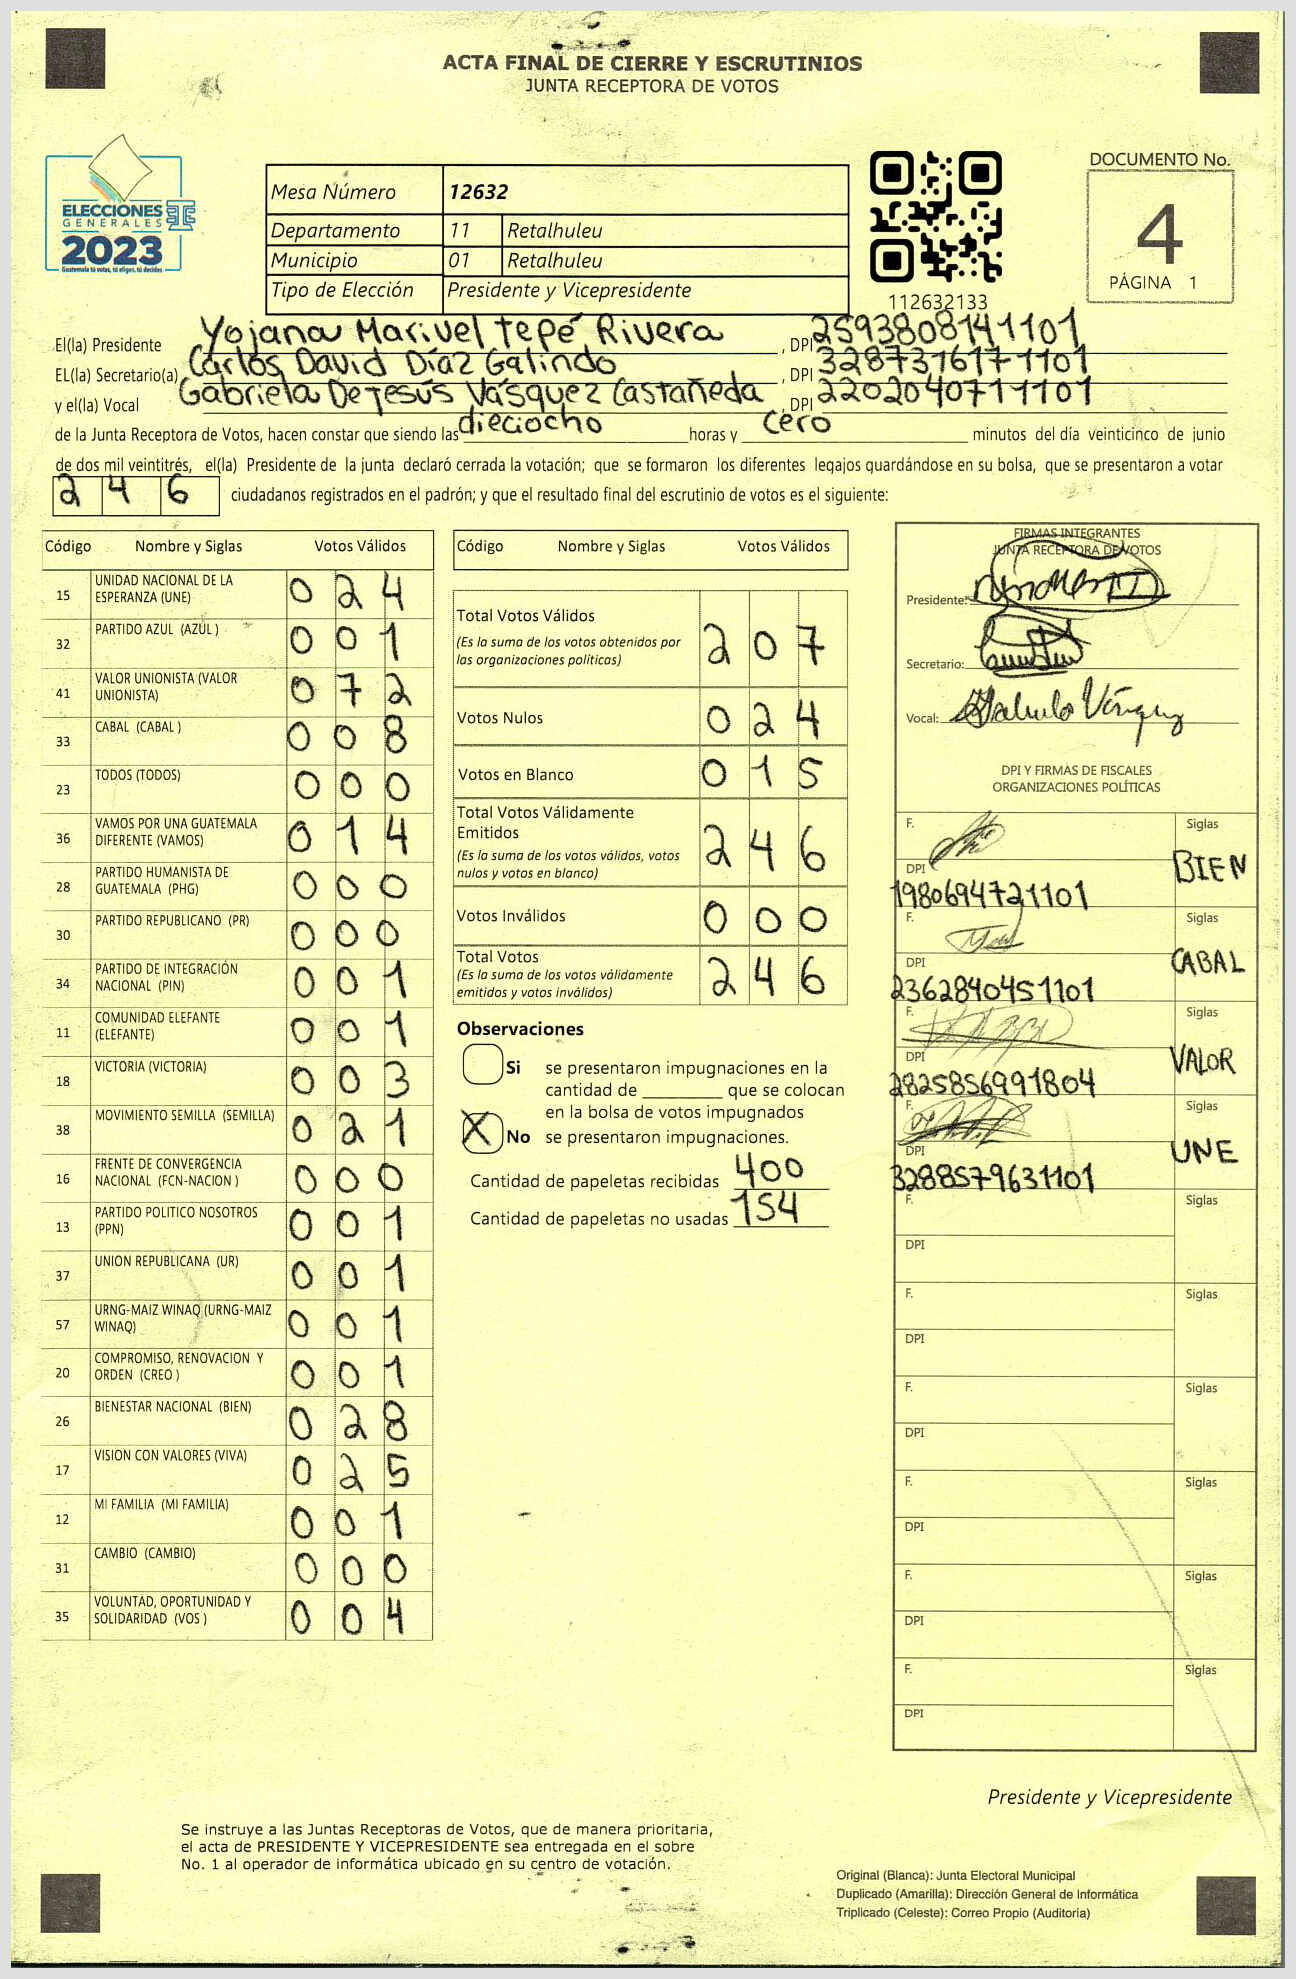 ACTA FINAL DE CIERRE Y ESCRUTINIOS
JUNTA RECEPTORA DE VOTOS
ELECCIONES
GENERALES
2023
Guatemala tú votas, tú eliges, tú decides
Mesa Número 12632
Departamento 11 Retalhuleu
Municipio 01 Retalhuleu
Tipo de Elección Presidente y Vicepresidente
112632133
DOCUMENTO No.
4
PÁGINA 1
El(la) Presidente Yojana Marivel tepé Rivera , DPI 2593808141101
EL(la) Secretario(a) Carlos David Díaz Galindo , DPI 3287316171101
y el(la) Vocal Gabriela De Jesús Vásquez Castañeda , DPI 2202040711101
de la Junta Receptora de Votos, hacen constar que siendo las dieciocho horas y cero minutos del día veinticinco de junio
de dos mil veintitrés, el(la) Presidente de la junta declaró cerrada la votación; que se formaron los diferentes legajos quardándose en su bolsa, que se presentaron a votar
246 ciudadanos registrados en el padrón; y que el resultado final del escrutinio de votos es el siguiente:
Código Nombre y Siglas Votos Válidos
15 UNIDAD NACIONAL DE LA ESPERANZA (UNE) 024
32 PARTIDO AZUL (AZUL ) 001
41 VALOR UNIONISTA (VALOR UNIONISTA) 072
33 CABAL (CABAL ) 008
23 TODOS (TODOS) 000
36 VAMOS POR UNA GUATEMALA DIFERENTE (VAMOS) 014
28 PARTIDO HUMANISTA DE GUATEMALA (PHG) 000
30 PARTIDO REPUBLICANO (PR) 000
34 PARTIDO DE INTEGRACIÓN NACIONAL (PIN) 001
11 COMUNIDAD ELEFANTE (ELEFANTE) 001
18 VICTORIA (VICTORIA) 003
38 MOVIMIENTO SEMILLA (SEMILLA) 021
16 FRENTE DE CONVERGENCIA NACIONAL (FCN-NACION ) 000
13 PARTIDO POLITICO NOSOTROS (PPN) 001
37 UNION REPUBLICANA (UR) 001
57 URNG-MAIZ WINAQ (URNG-MAIZ WINAQ) 001
20 COMPROMISO, RENOVACION Y ORDEN (CREO ) 001
26 BIENESTAR NACIONAL (BIEN) 028
17 VISION CON VALORES (VIVA) 025
12 MI FAMILIA (MI FAMILIA) 001
31 CAMBIO (CAMBIO) 000
35 VOLUNTAD, OPORTUNIDAD Y SOLIDARIDAD (VOS ) 004
Código Nombre y Siglas Votos Válidos
Total Votos Válidos 207
(Es la suma de los votos obtenidos por
las organizaciones políticas)
Votos Nulos 024
Votos en Blanco 015
Total Votos Válidamente
Emitidos 246
(Es la suma de los votos válidos, votos
nulos y votos en blanco)
Votos Inválidos 000
Total Votos 246
(Es la suma de los votos válidamente
emitidos y votos inválidos)
Observaciones
Si se presentaron impugnaciones en la
cantidad de ________ que se colocan
en la bolsa de votos impugnados
X No se presentaron impugnaciones.
Cantidad de papeletas recibidas 400
Cantidad de papeletas no usadas 154
FIRMAS INTEGRANTES
JUNTA RECEPTORA DE VOTOS
Presidente:
Secretario:
Vocal:
DPI Y FIRMAS DE FISCALES
ORGANIZACIONES POLÍTICAS
F. Siglas
BIEN
DPI
1980694721101
F. Siglas
CABAL
DPI
2362840451101
F. Siglas
VALOR
DPI
2825856991804
F. Siglas
UNE
DPI
3288579631101
F. Siglas
DPI
F. Siglas
DPI
F. Siglas
DPI
F. Siglas
DPI
F. Siglas
DPI
F. Siglas
DPI
Presidente y Vicepresidente
Se instruye a las Juntas Receptoras de Votos, que de manera prioritaria,
el acta de PRESIDENTE Y VICEPRESIDENTE sea entregada en el sobre
No. 1 al operador de informática ubicado en su centro de votación.
Original (Blanca): Junta Electoral Municipal
Duplicado (Amarilla): Dirección General de Informática
Triplicado (Celeste): Correo Propio (Auditoría)